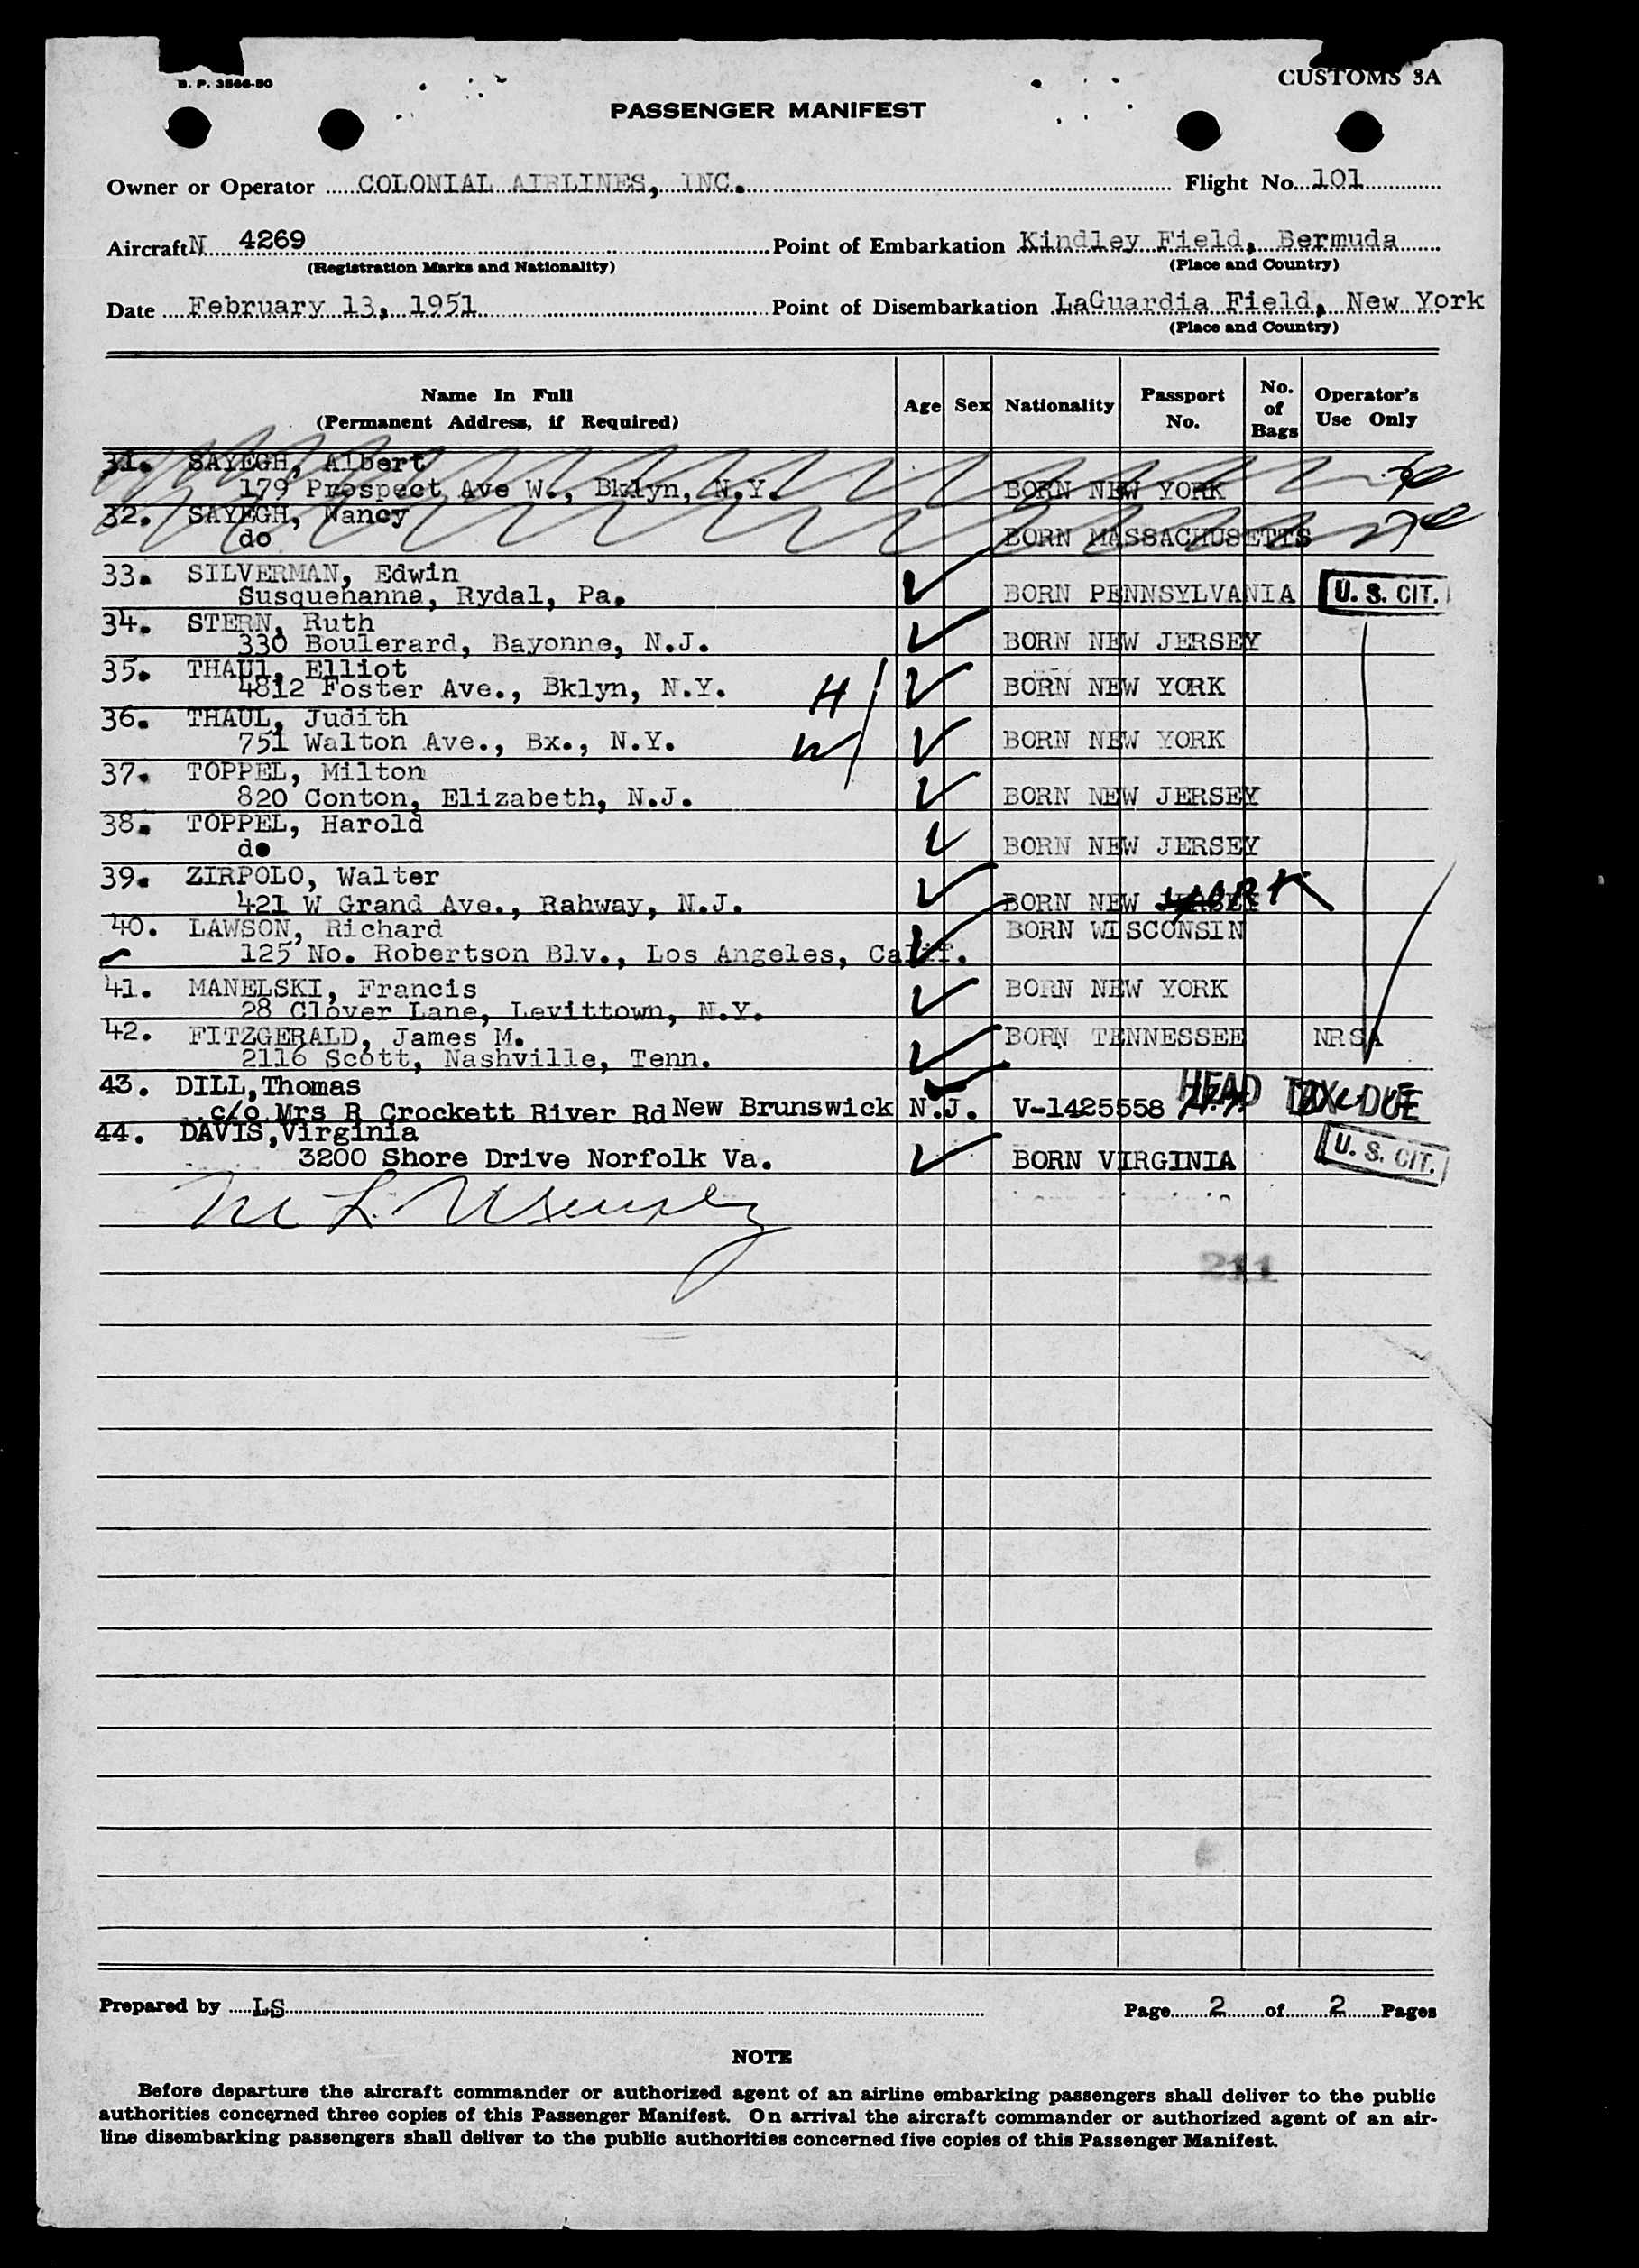 B. P. 3566-50
CUSTOMS 3A
PASSENGER MANIFEST
Owner or Operator COLONIAL AIRLINES, INC. Flight No. 101
Aircraft N 4269 Point of Embarkation Kindley Field, Bermuda
(Registration Marks and Nationality) (Place and Country)
Date February 13, 1951 Point of Disembarkation LaGuardia Field, New York
(Place and Country)
Name In Full (Permanent Address, if Required) Age Sex Nationality Passport No. No. of Bags Operator's Use Only
31. SAYEGH, Albert
179 Prospect Ave W., Bklyn, N.Y. BORN NEW YORK
32. SAYEGH, Nancy
do BORN MASSACHUSETTS
33. SILVERMAN, Edwin
Susquehanna, Rydal, Pa. BORN PENNSYLVANIA U. S. CIT.
34. STERN, Ruth
330 Boulerard, Bayonne, N.J. BORN NEW JERSEY
35. THAUl, Elliot
4812 Foster Ave., Bklyn, N.Y. H BORN NEW YORK
36. THAUL, Judith
751 Walton Ave., Bx., N.Y. W BORN NEW YORK
37. TOPPEL, Milton
820 Conton, Elizabeth, N.J. BORN NEW JERSEY
38. TOPPEL, Harold
do BORN NEW JERSEY
39. ZIRPOLO, Walter
421 W Grand Ave., Rahway, N.J. BORN NEW YORK
40. LAWSON, Richard BORN WISCONSIN
125 No. Robertson Blv., Los Angeles, Calif.
41. MANELSKI, Francis BORN NEW YORK
28 Clover Lane, Levittown, N.Y.
42. FITZGERALD, James M. BORN TENNESSEE NRSA
2116 Scott, Nashville, Tenn.
43. DILL, Thomas
c/o Mrs R Crockett River Rd New Brunswick N.J. V-1425558 HEAD TAX DUE
44. DAVIS, Virginia
3200 Shore Drive Norfolk Va. BORN VIRGINIA U. S. CIT.
M L
211
Prepared by LS Page 2 of 2 Pages
NOTE
Before departure the aircraft commander or authorized agent of an airline embarking passengers shall deliver to the public
authorities concerned three copies of this Passenger Manifest. On arrival the aircraft commander or authorized agent of an air-
line disembarking passengers shall deliver to the public authorities concerned five copies of this Passenger Manifest.